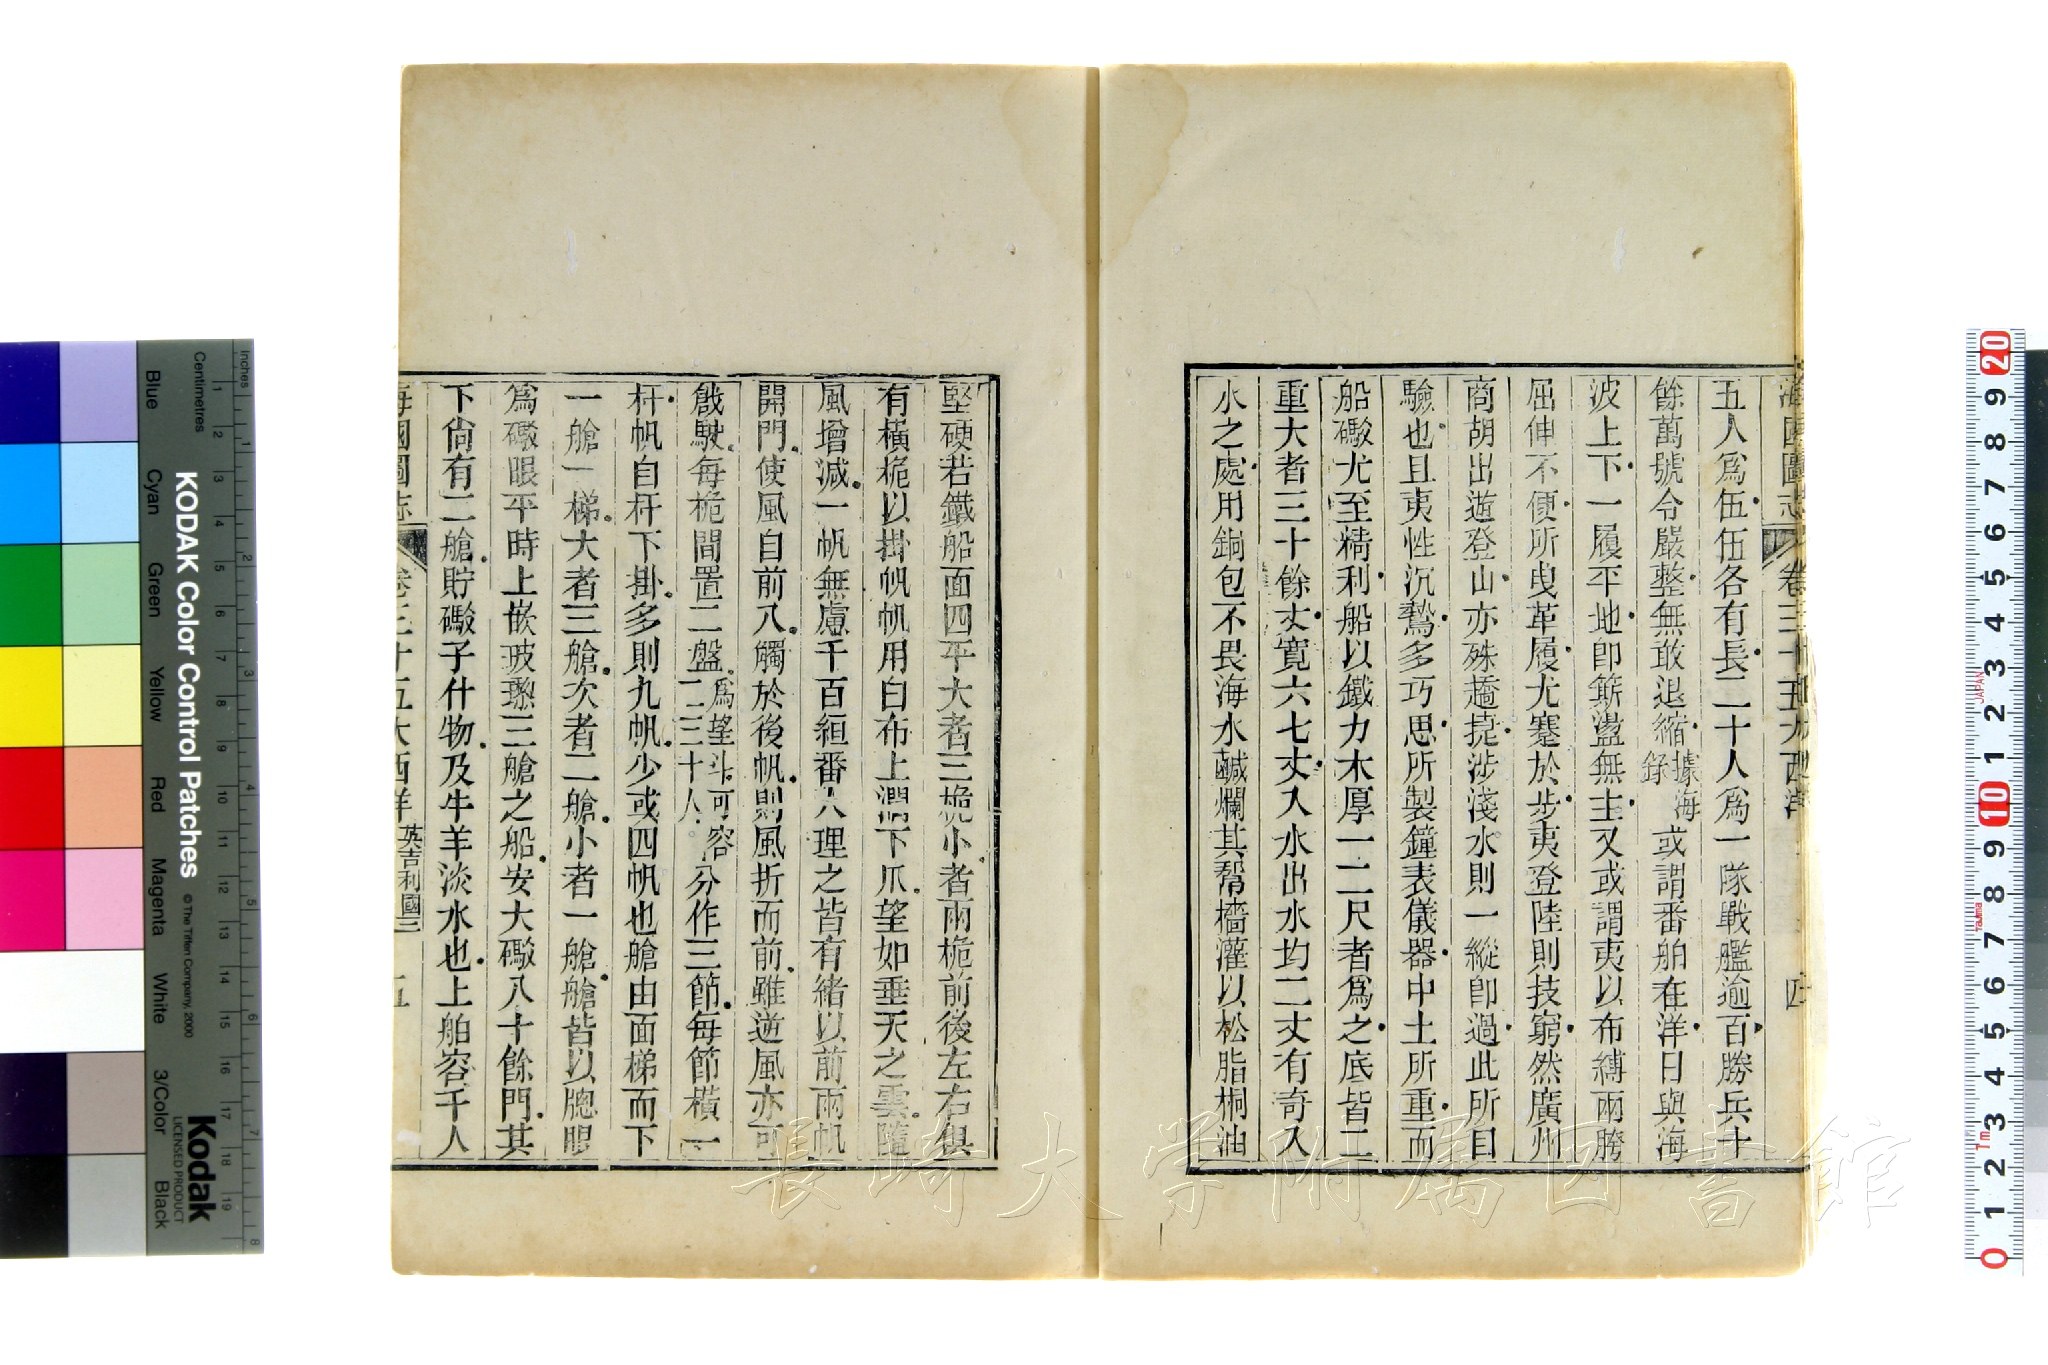 海國圖志 卷三十五 大西洋 四
五人爲伍伍各有長二十人爲一隊戰艦逾百勝兵十
餘萬號令嚴整無敢退縮據海錄或謂番舶在洋日與海
波上下一履平地卽簸盪無主又或謂夷以布縛兩胯
屈伸不便所曳革履尤蹇於步夷登陸則技窮然廣州
商胡出遊登山亦殊趫捷涉淺水則一縱卽過此所目
驗也且夷性沉鷙多巧思所製鐘表儀器中土所重而
船礮尤至精利船以鐵力木厚一二尺者爲之底皆二
重大者三十餘丈寛六七丈入水出水均二丈有奇入
水之處用銅包不畏海水鹹爛其幇檣灌以松脂桐油
堅硬若鐵船面四平大者三桅小者兩桅前後左右俱
有橫桅以掛帆帆用白布上濶下爪望如垂天之雲隨
風增減一帆無慮千百絙番人理之皆有緒以前兩帆
開門使風自前入觸於後帆則風折而前雖逆風亦可
戧駛每桅間置二盤爲望斗可容二三十人分作三節每節橫一
杆帆自杆下掛多則九帆少或四帆也艙由面梯而下
一艙一梯大者三艙次者二艙小者一艙艙皆以牕眼
爲礮眼平時上嵌玻瓈三艙之船安大礮八十餘門其
下尙有二艙貯礮子什物及牛羊淡水也上舶容千人
海國圖志 卷三十五 大西洋 英吉利國三 五
長崎大学附属図書館
KODAK Color Control Patches
© The Tiffen Company, 2000
Kodak
LICENSED PRODUCT
Inches 1 2 3 4 5 6 7 8
Centimetres 1 2 3 4 5 6 7 8 9 10 11 12 13 14 15 16 17 18 19
Blue Cyan Green Yellow Red Magenta White 3/Color Black
20 9 8 7 6 5 4 3 2 1 10 9 8 7 6 5 4 3 2 1 0
JAPAN
Tajima